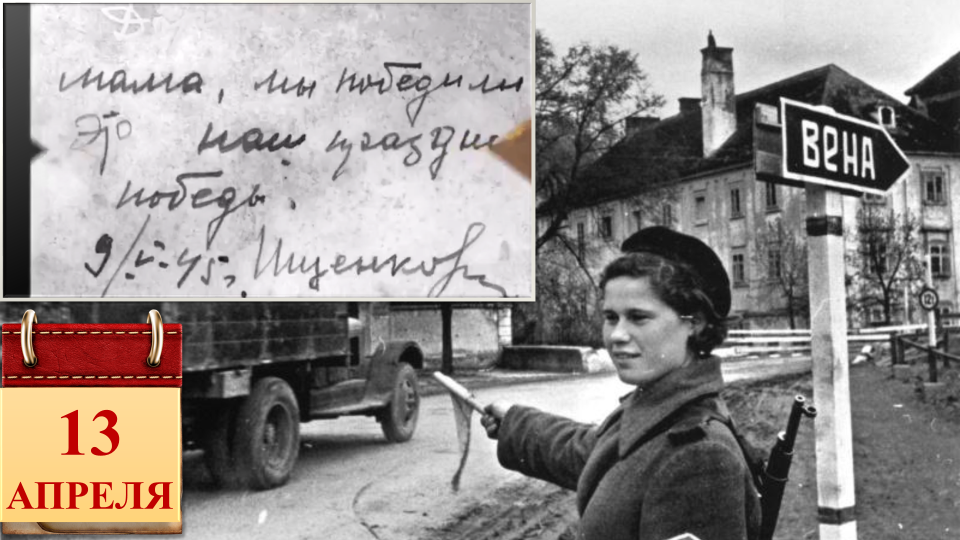 мама, мы победили
Это наш праздник
победы.
9/V-45г. Ищенкова
ВЕНА
12т
13
АПРЕЛЯ